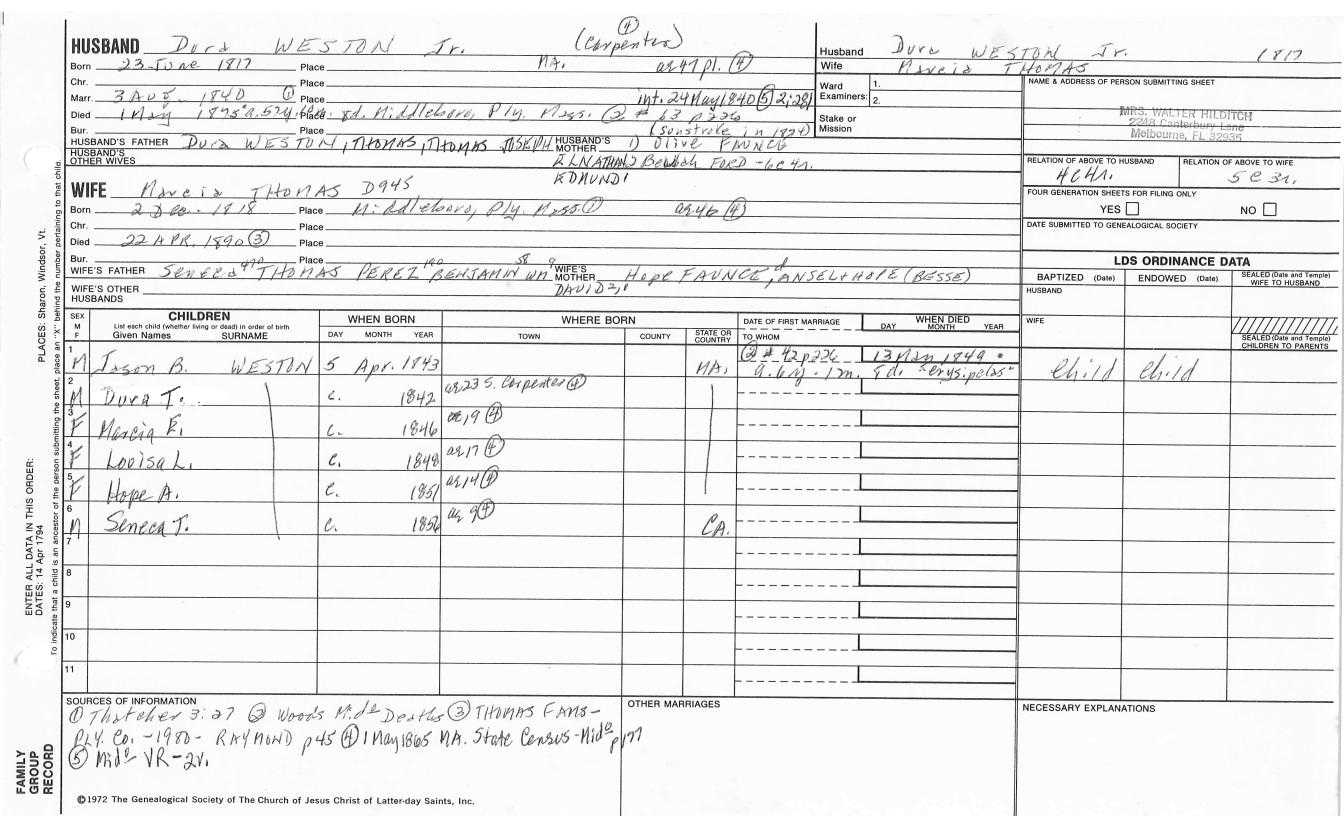 HUSBAND Dura WESTON Jr. (Carpenter) ④
Born 23 June 1817 Place MA. ag 47 pl. ④
Chr. Place
Marr. 3 Aug. 1840 ① Place int. 24 May 1840 ⑤ 2:281
Died 1 May Place rd. Middleboro, Ply. Mass. ② # 63 p226
Bur. Place (Sunstroke in
HUSBAND'S FATHER Dura WESTON, THOMAS, THOMAS JOSEPH HUSBAND'S MOTHER 1) Olive FAUNCE
HUSBAND'S OTHER WIVES FORD -6C4r.
EDMUND1
WIFE Marcia THOMAS D945
Born 2 Dec. 1818 Place Middleboro, Ply. Mass. ① ag 46 ④
Chr. Place
Died 22 APR. 1890 ③ Place
Bur. Place
WIFE'S FATHER Seneca THOMAS PEREZ BENJAMIN Wm WIFE'S MOTHER Hope FAUNCE, d ANSEL + HOPE (BESSE)
WIFE'S OTHER HUSBANDS DAVID2,1
Husband Dura WESTON Jr. 1817
Wife Marcia THOMAS
Ward Examiners: 1.
2.
Stake or Mission
NAME & ADDRESS OF PERSON SUBMITTING SHEET
MRS. WALTER HILDITCH
2248 Canterbury Lane
Melbourne, FL 32935
RELATION OF ABOVE TO HUSBAND RELATION OF ABOVE TO WIFE
4C4r. 5C3r.
FOUR GENERATION SHEETS FOR FILING ONLY
YES NO
DATE SUBMITTED TO GENEALOGICAL SOCIETY
LDS ORDINANCE DATA
BAPTIZED (Date) ENDOWED (Date) SEALED (Date and Temple) WIFE TO HUSBAND
HUSBAND
WIFE
SEALED (Date and Temple) CHILDREN TO PARENTS
SEX M F CHILDREN WHEN BORN WHERE BORN DATE OF FIRST MARRIAGE WHEN DIED
List each child (whether living or dead) in order of birth
Given Names SURNAME DAY MONTH YEAR TOWN COUNTY STATE OR COUNTRY TO WHOM DAY MONTH YEAR
1 M Jason B. WESTON 5 Apr. 1843 MA. ② # 42 p226 13 May 1849
a. 6y - 1m. 8d. "erysipelas" Child Child
2 M Dura T. c. 1842 ag 23 S. Carpenter ④
3 F Marcia E. c. 1846 ag 19 ④
4 F Louisa L. c. 1848 ag 17 ④
5 F Hope A. c. 1851 ag 14 ④
6 M Seneca T. c. 1856 ag 9 ④ CA.
7
8
9
10
11
SOURCES OF INFORMATION
① Thatcher 3:27 ② Wood's Mide Deaths ③ THOMAS FAMS-
PLY. Co. -1980- RAYMOND p45 ④ 1 May 1865 MA. State Census - Mide p177
⑤ Mide VR-2v.
OTHER MARRIAGES
NECESSARY EXPLANATIONS
©1972 The Genealogical Society of The Church of Jesus Christ of Latter-day Saints, Inc.
FAMILY GROUP RECORD
ENTER ALL DATA IN THIS ORDER:
DATES: 14 Apr 1794
PLACES: Sharon, Windsor, Vt.
To indicate that a child is an ancestor of the person submitting the sheet, place an "X" behind the number pertaining to that child.